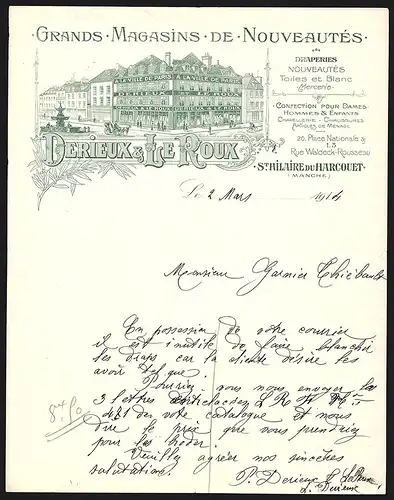 GRANDS · MAGASINS · DE · NOUVEAUTÉS
DRAPERIES
NOUVEAUTÉS
Toiles et Blanc
Mercerie
CONFECTION POUR DAMES
HOMMES & ENFANTS
CHAPELLERIE - CHAUSSURES
ARTICLES DE MÉNAGE
26, Place Nationale &
1.3
Rue Waldeck-Rousseau
A LA VILLE DE PARIS
A LA VILLE DE PARIS
DERIEUX & LE ROUX
ST HILAIRE DU HARCOUET
(MANCHE)
Le 2 Mars 1914
Monsieur Garnier Thiébault
En possession de votre courrier
il est inutile de faire blanchir
les draps car la cliente désire les
avoir tel que.
Pourriez vous nous envoyer les
3 lettres entrelacées R
de votre catalogue et nous
dire le prix que vous prendriez
pour les broder.
Veuillez agréer nos sincères
salutations.
P. Derieux & LeRoux
Derieux